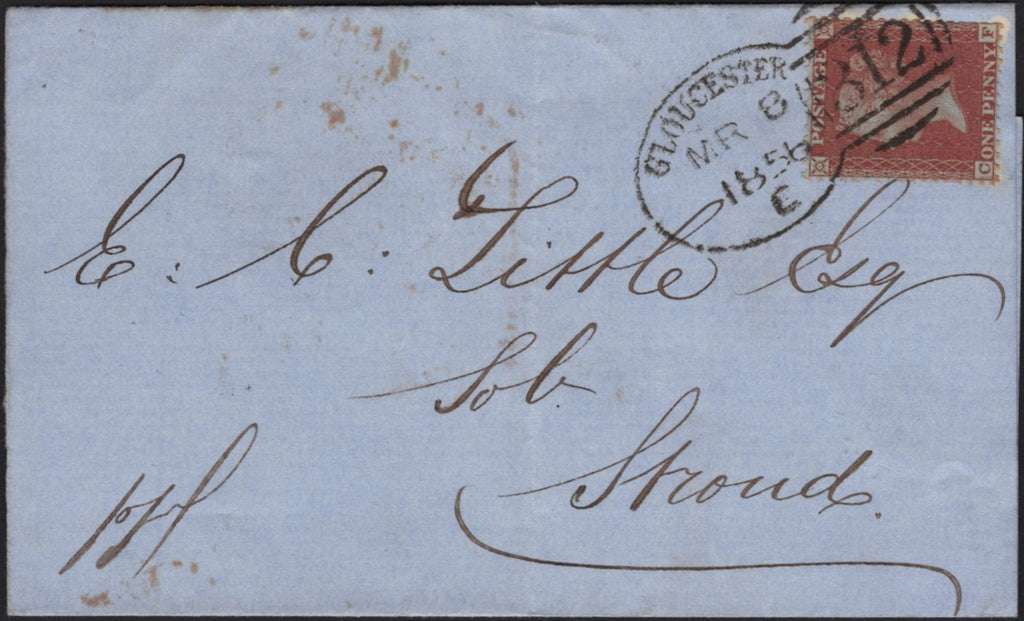 GLOUCESTER
MR 8
1856
C
312
POSTAGE
ONE PENNY
F
C
E. C. Little Esq
Sol
Stroud.